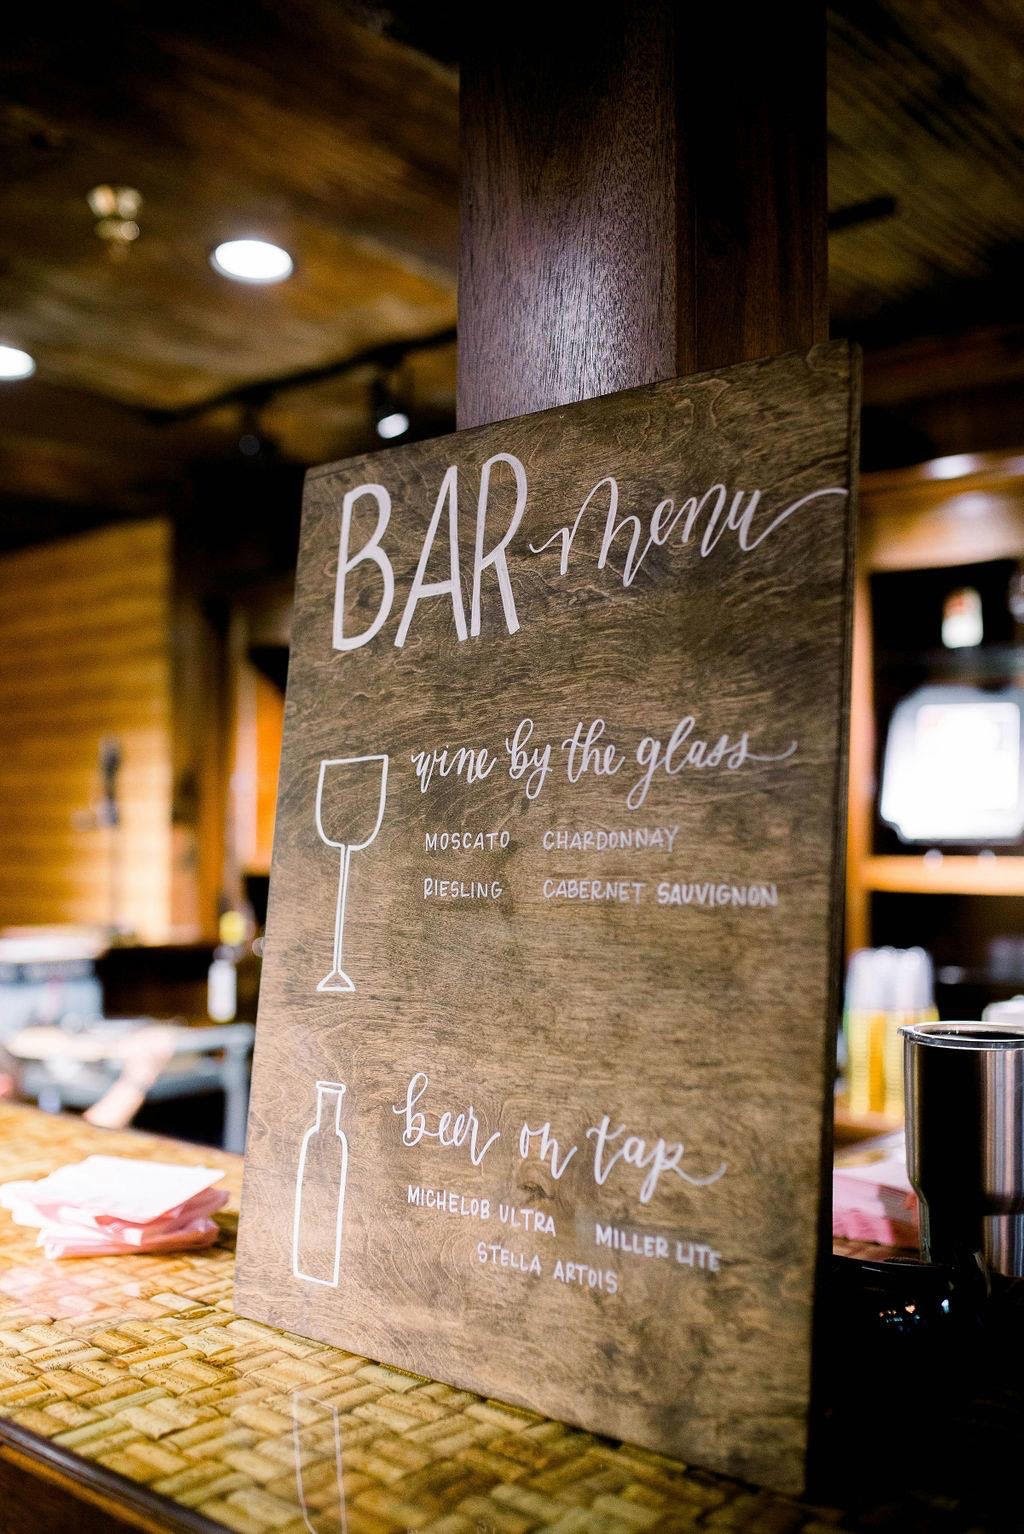 BAR menu
wine by the glass
MOSCATO CHARDONNAY
RIESLING CABERNET SAUVIGNON
beer on tap
MICHELOB ULTRA MILLER LITE
STELLA ARTOIS